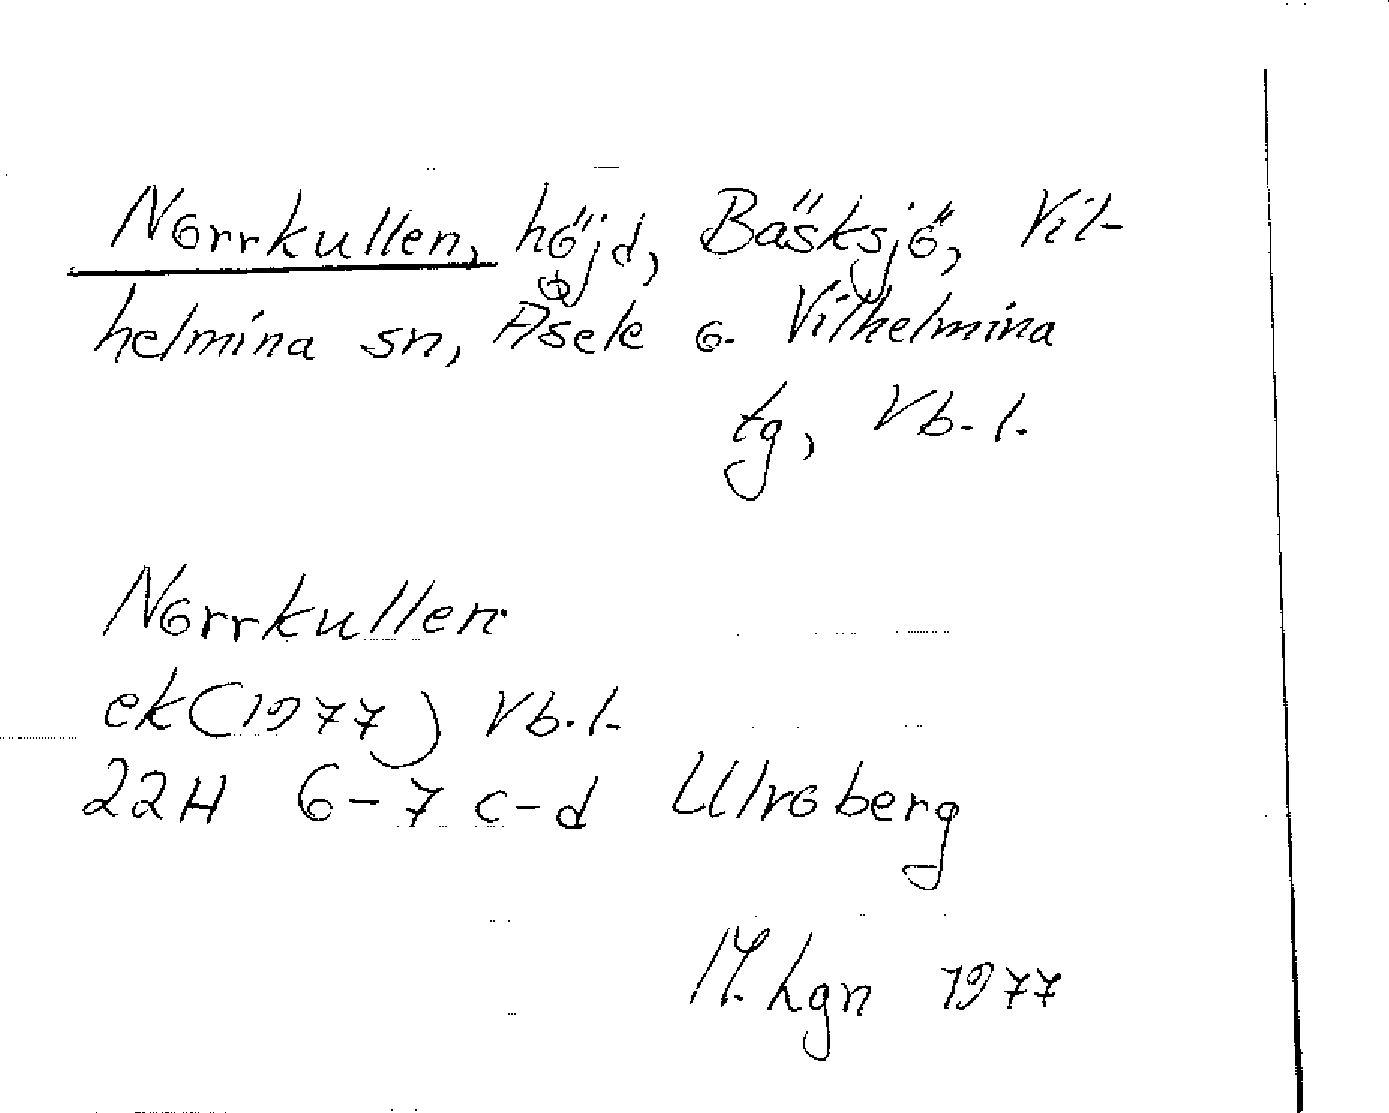 Norrkullen, höjd, Bäsksjö, Vil-
helmina sn, Åsele o. Vilhelmina
tg, Vb. l.
Norrkullen
ek (1977) Vb. l.
22H 6-7 c-d Ulvoberg
M. Lgn 1977